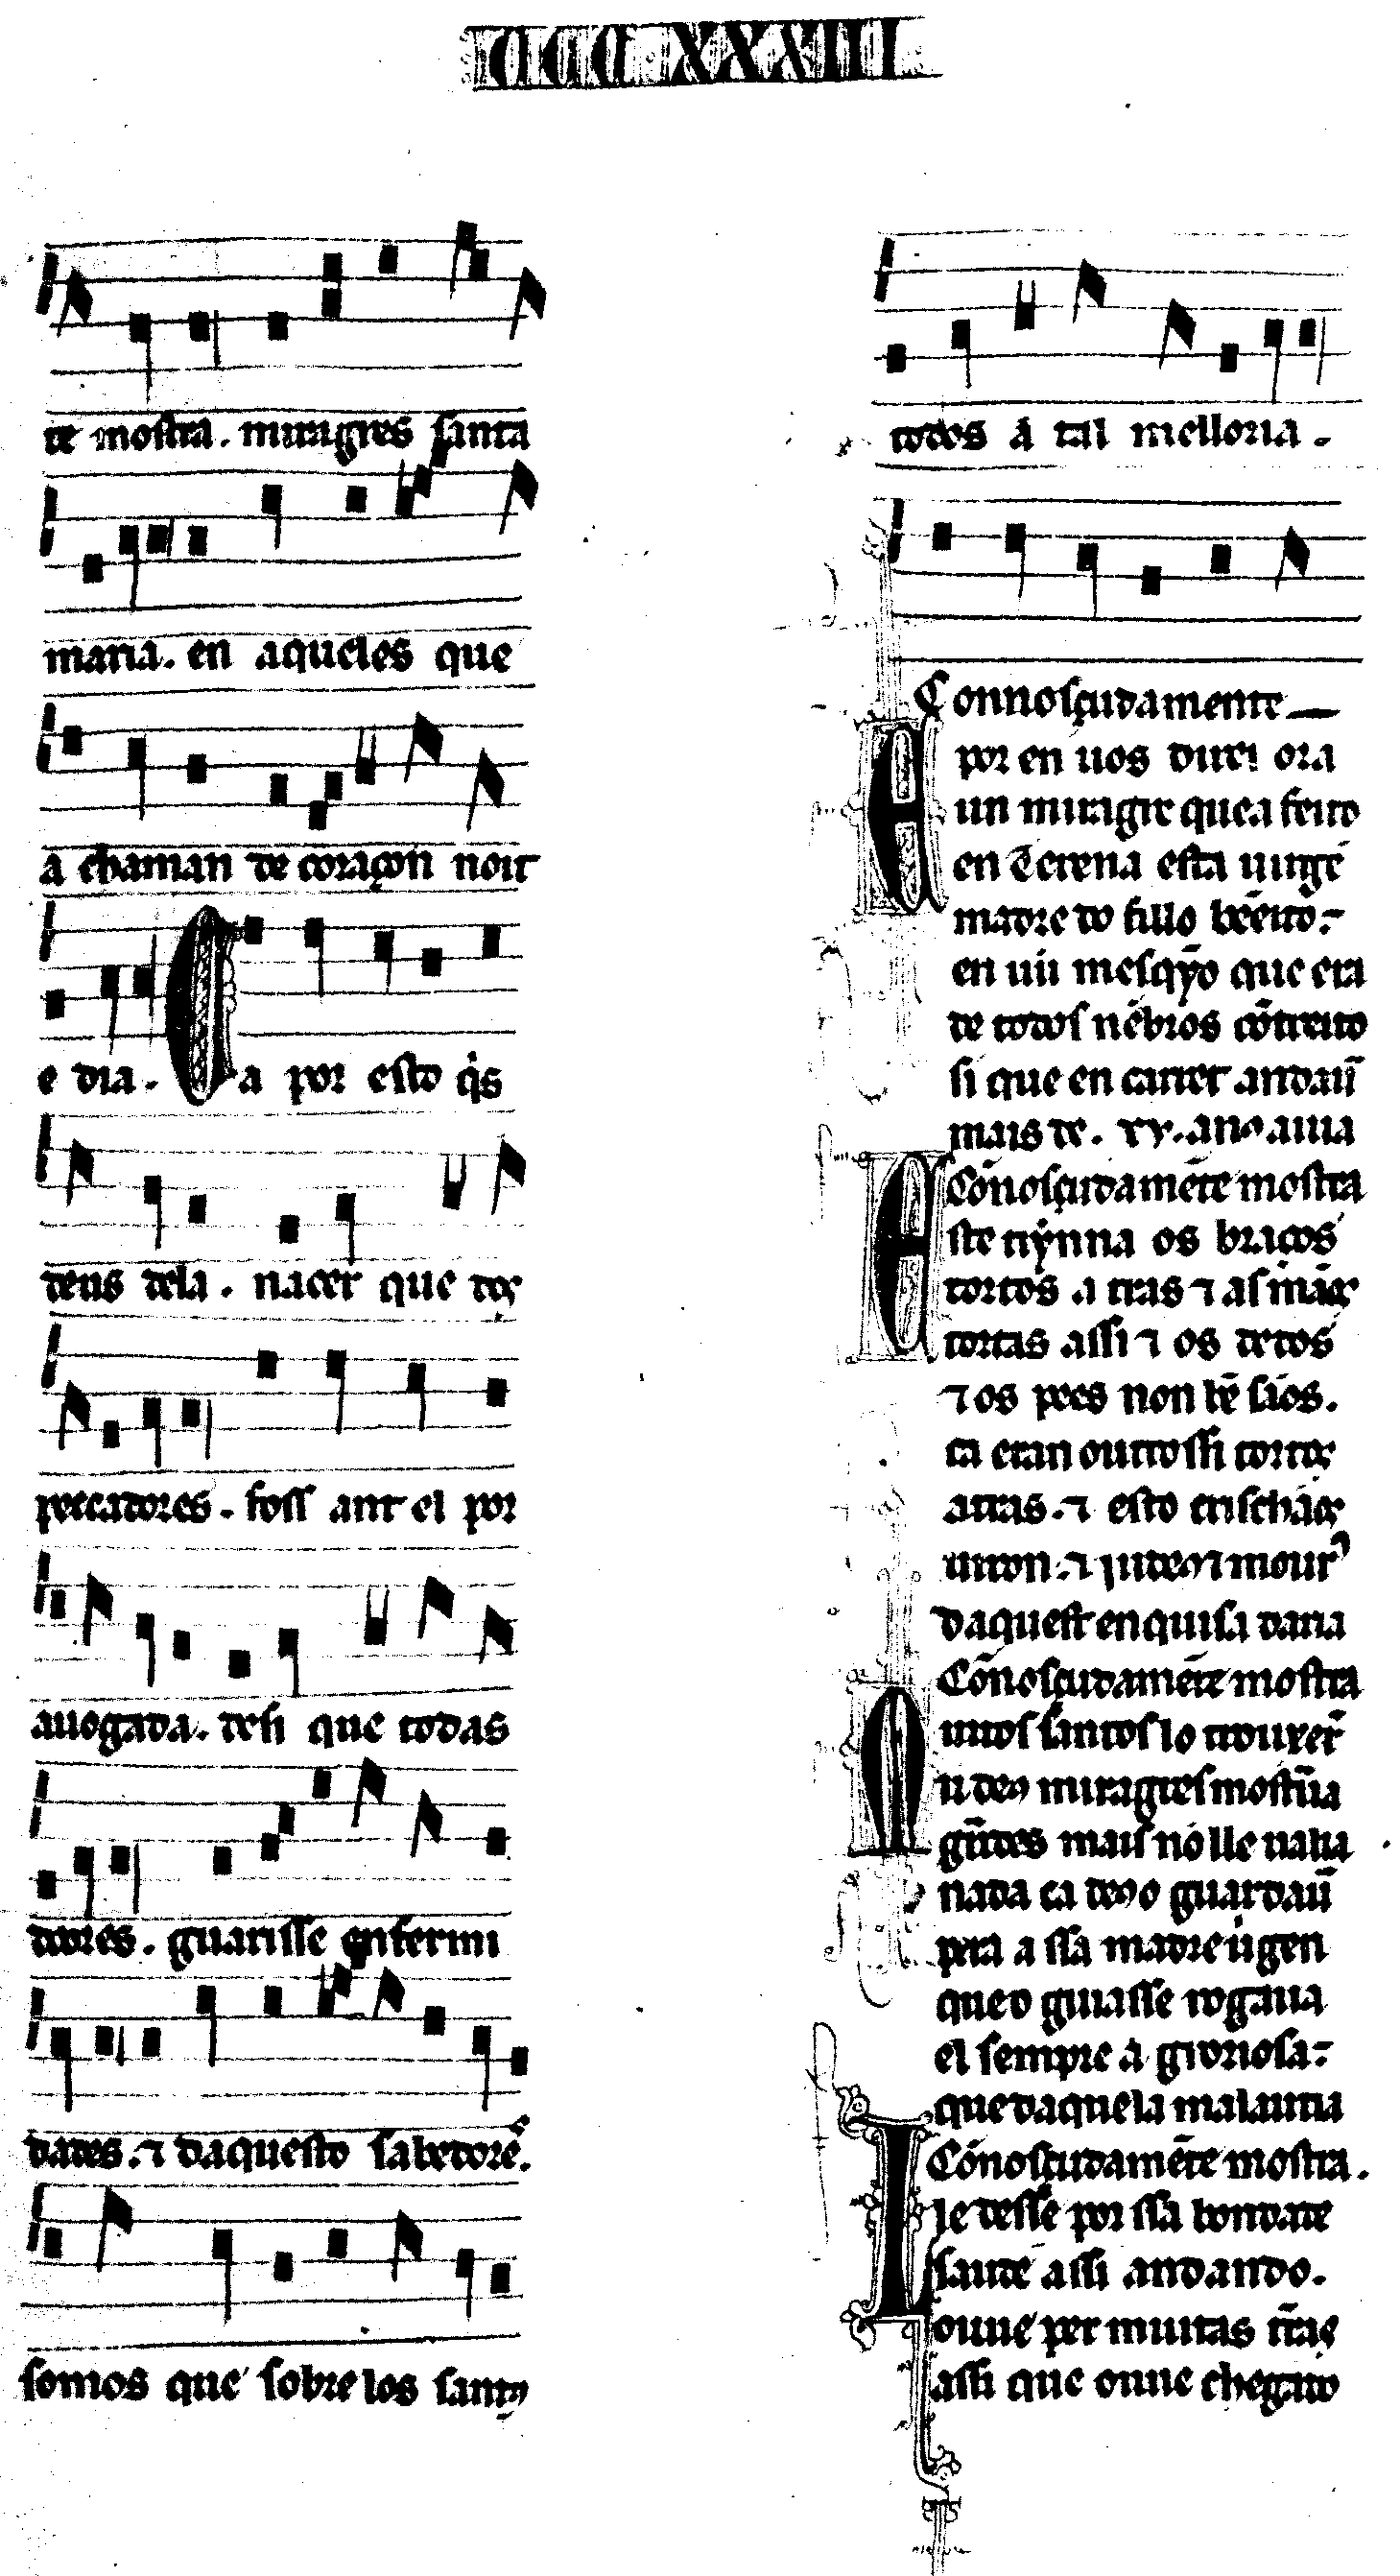 CCC XXXIII
te mostra. miragres santa
maria. en aqueles que
a chaman de coraçon noit
e dia. Ca por esto q̇s
deus dela. nacer que dos
peccadores. foss ant el por
auogada. desi que todas
doores. guarisse enfermi
dades. ⁊ daquesto sabedorē.
somos que sobre los santos
todos á tal melloria.
Connosçudamente
A por en uos direi ora
un miragre que a feito
en Terena esta uirgē
madre do fillo bēeito.
en uũ mesqỹo que era
de todos nēbros cōtreito
si que en carret andaũ
mais de. xv. anos auia
Cōnosçudamēte mostra
Este tijnna os braços
tortos atras ⁊ as mãos
tortas assi ⁊ os dedos
⁊ os pees non bē sãos.
ca eran outrossi tortos
atras. ⁊ esto crischãos
uiron. ⁊ judeos ⁊ mour᷒
daquest en quisa daria
Cōnosçudamēte mostra
Muitos santos lo trouxer̄
u deos miragres mostr̄ua
gr̄ades mais nō lle ualia
nada ca deos o guardaũ
pera a ssa madre uirgen
que o guarisse rogaua
el sempre á groriosa.
que daquela malautia
Cōnosçudamēte mostra.
Lle desse por ssa bondade
saude assi andando.
ouue per muitas t̄ras
assi que ouue chegado